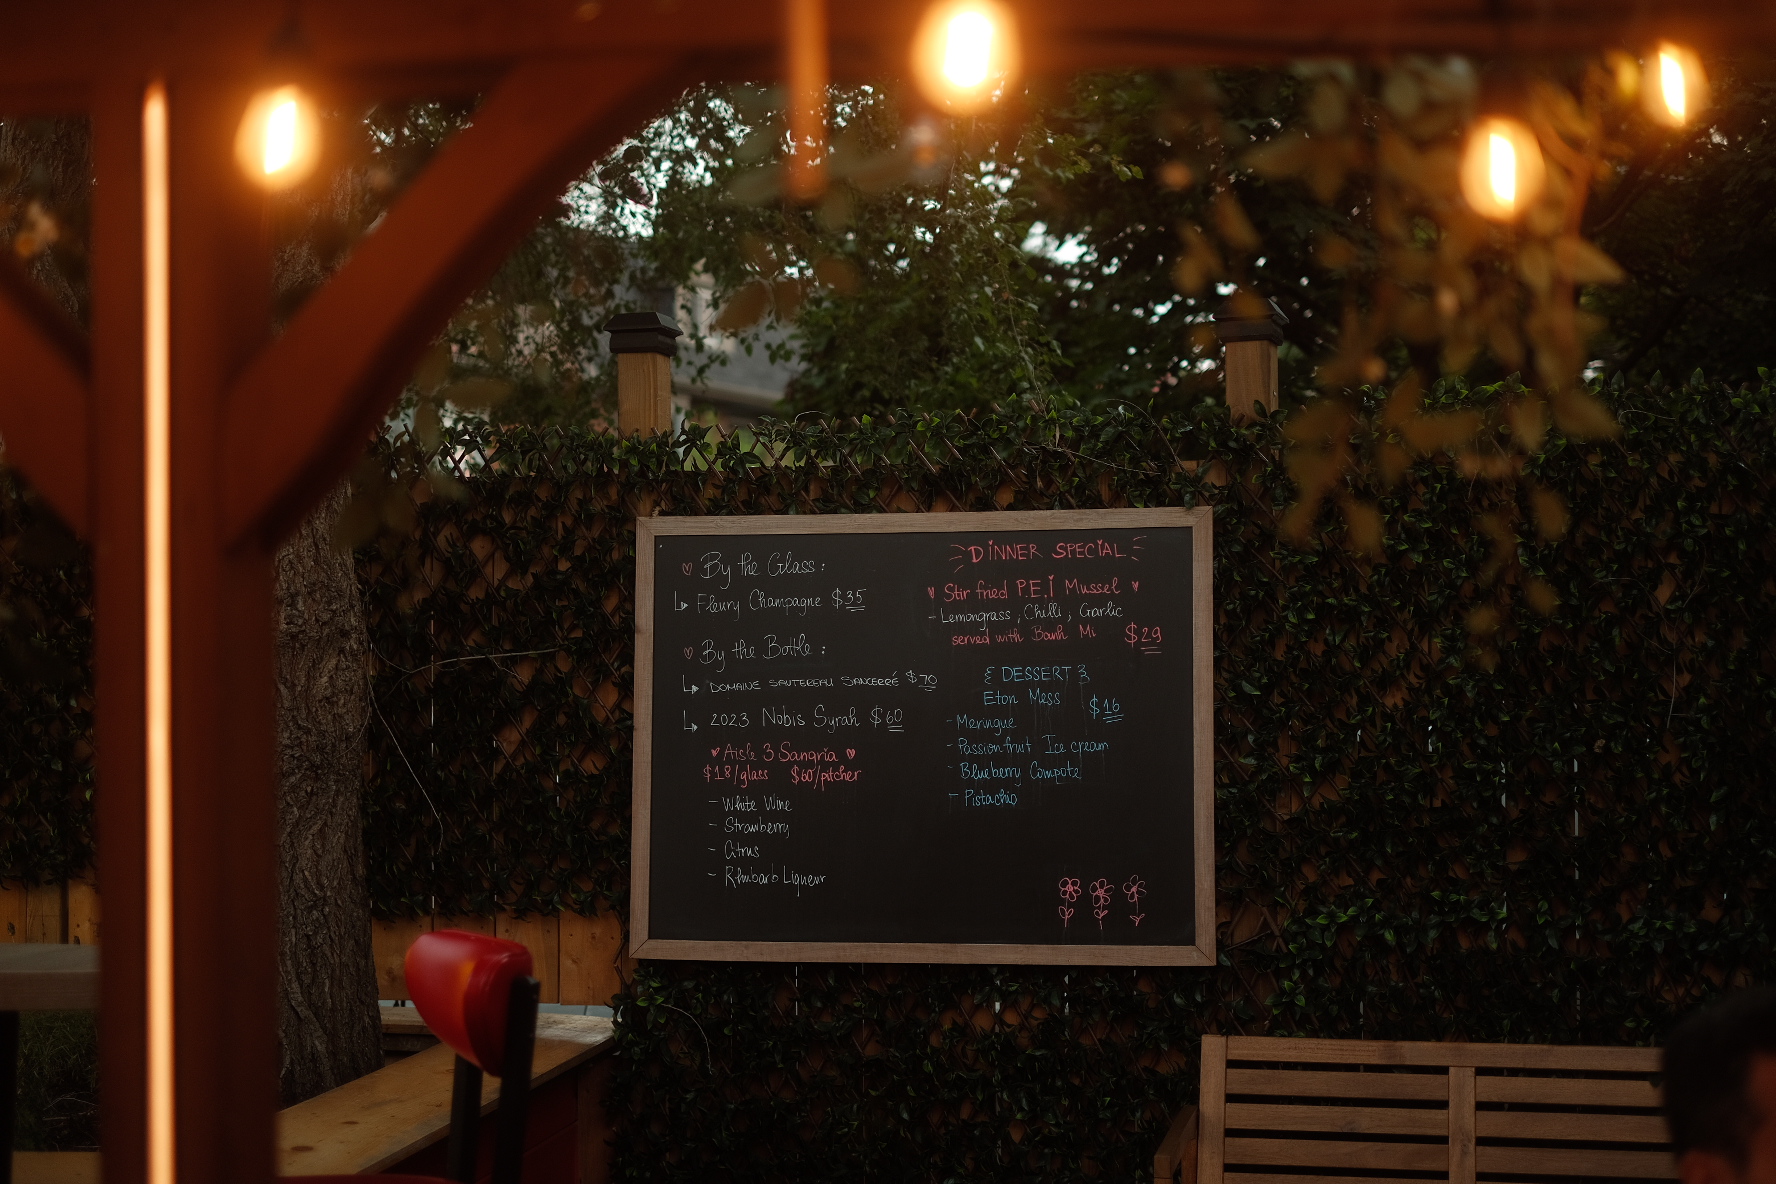 By the Glass :
Fleury Champagne $35
By the Bottle :
DOMAINE SAUTEREAU SANCERRÉ $70
2023 Nobis Syrah $60
Aisle 3 Sangria
$18/glass $60/pitcher
- White Wine
- Strawberry
- Citrus
- Rhubarb Liqueur
DINNER SPECIAL
Stir fried P.E.I Mussel
- Lemongrass, Chilli, Garlic
served with Banh Mi $29
DESSERT
Eton Mess $16
- Meringue
- Passionfruit Ice cream
- Blueberry Compote
- Pistachio